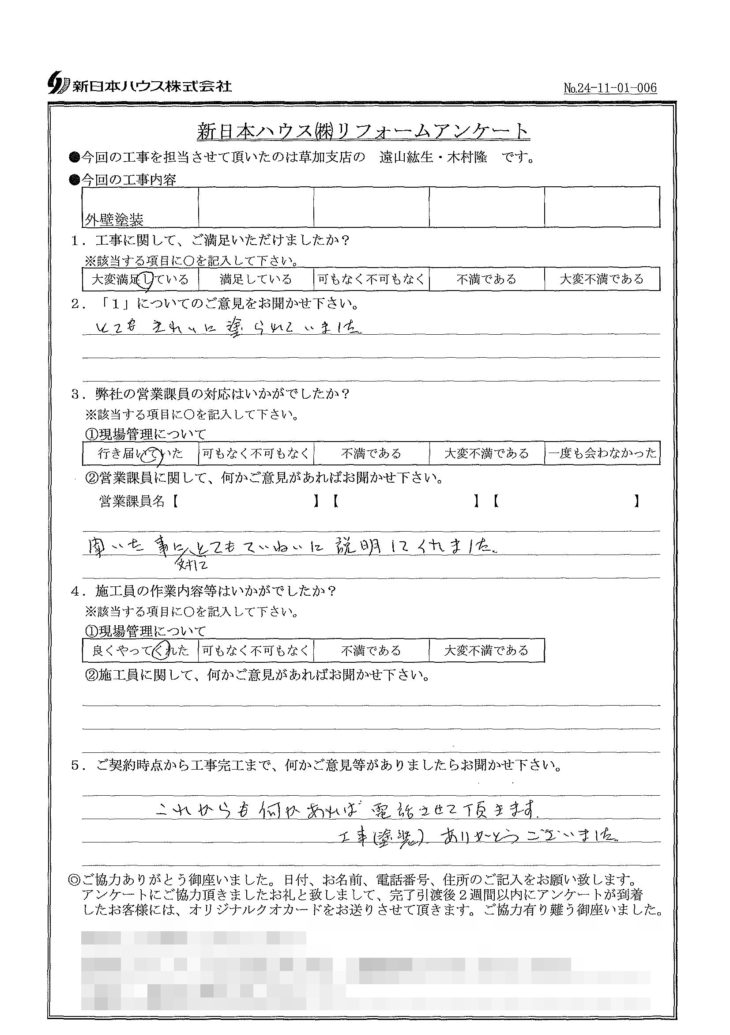 新日本ハウス株式会社
No.24-11-01-006
新日本ハウス㈱リフォームアンケート
●今回の工事を担当させて頂いたのは草加支店の 遠山紘生・木村隆 です。
●今回の工事内容
外壁塗装
1．工事に関して、ご満足いただけましたか？
※該当する項目に○を記入して下さい。
大変満足している 満足している 可もなく不可もなく 不満である 大変不満である
2．「1」についてのご意見をお聞かせ下さい。
とてもきれいに塗られていました
3．弊社の営業課員の対応はいかがでしたか？
※該当する項目に○を記入して下さい。
①現場管理について
行き届いていた 可もなく不可もなく 不満である 大変不満である 一度も会わなかった
②営業課員に関して、何かご意見があればお聞かせ下さい。
営業課員名【 】【 】【 】
聞いた事に対してとてもていねいに説明してくれました。
4．施工員の作業内容等はいかがでしたか？
※該当する項目に○を記入して下さい。
①現場管理について
良くやってくれた 可もなく不可もなく 不満である 大変不満である
②施工員に関して、何かご意見があればお聞かせ下さい。
5．ご契約時点から工事完工まで、何かご意見等がありましたらお聞かせ下さい。
これからも何かあれば電話させて頂きます。
工事(塗装)、ありがとうございました
◎ご協力ありがとう御座いました。日付、お名前、電話番号、住所のご記入をお願い致します。
アンケートにご協力頂きましたお礼と致しまして、完了引渡後2週間以内にアンケートが到着
したお客様には、オリジナルクオカードをお送りさせて頂きます。ご協力有り難う御座いました。